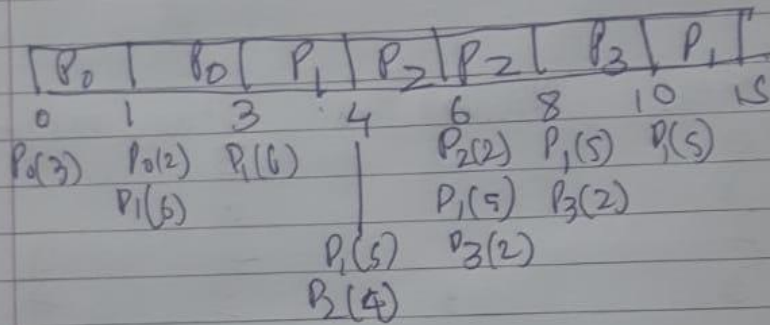 P0 | P0 | P1 | P2 | P2 | P3 | P1
0 1 3 4 6 8 10 15
P0(3) P0(2) P1(6) P2(2) P1(5) P1(5)
P1(6) P1(5) P3(2)
P1(5) P3(2)
P2(4)